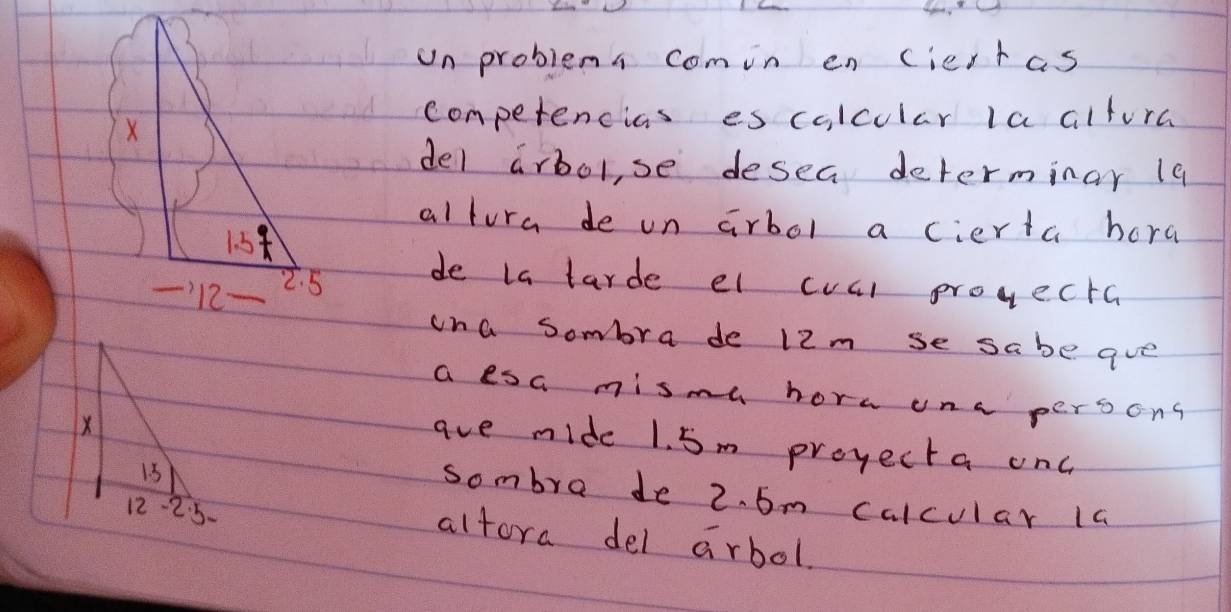 un problema común en ciertas
competencias es calcular la altura
del árbol, se desea determinar la
altura de un árbol a cierta hora
de la tarde el cual proyecta
una sombra de 12m se sabe que
a esa misma hora una persona
que mide 1.5m proyecta una
sombra de 2.5m calcular la
altora del árbol.
x
1.5
12
2.5
x
1.5
12 - 2.5 -